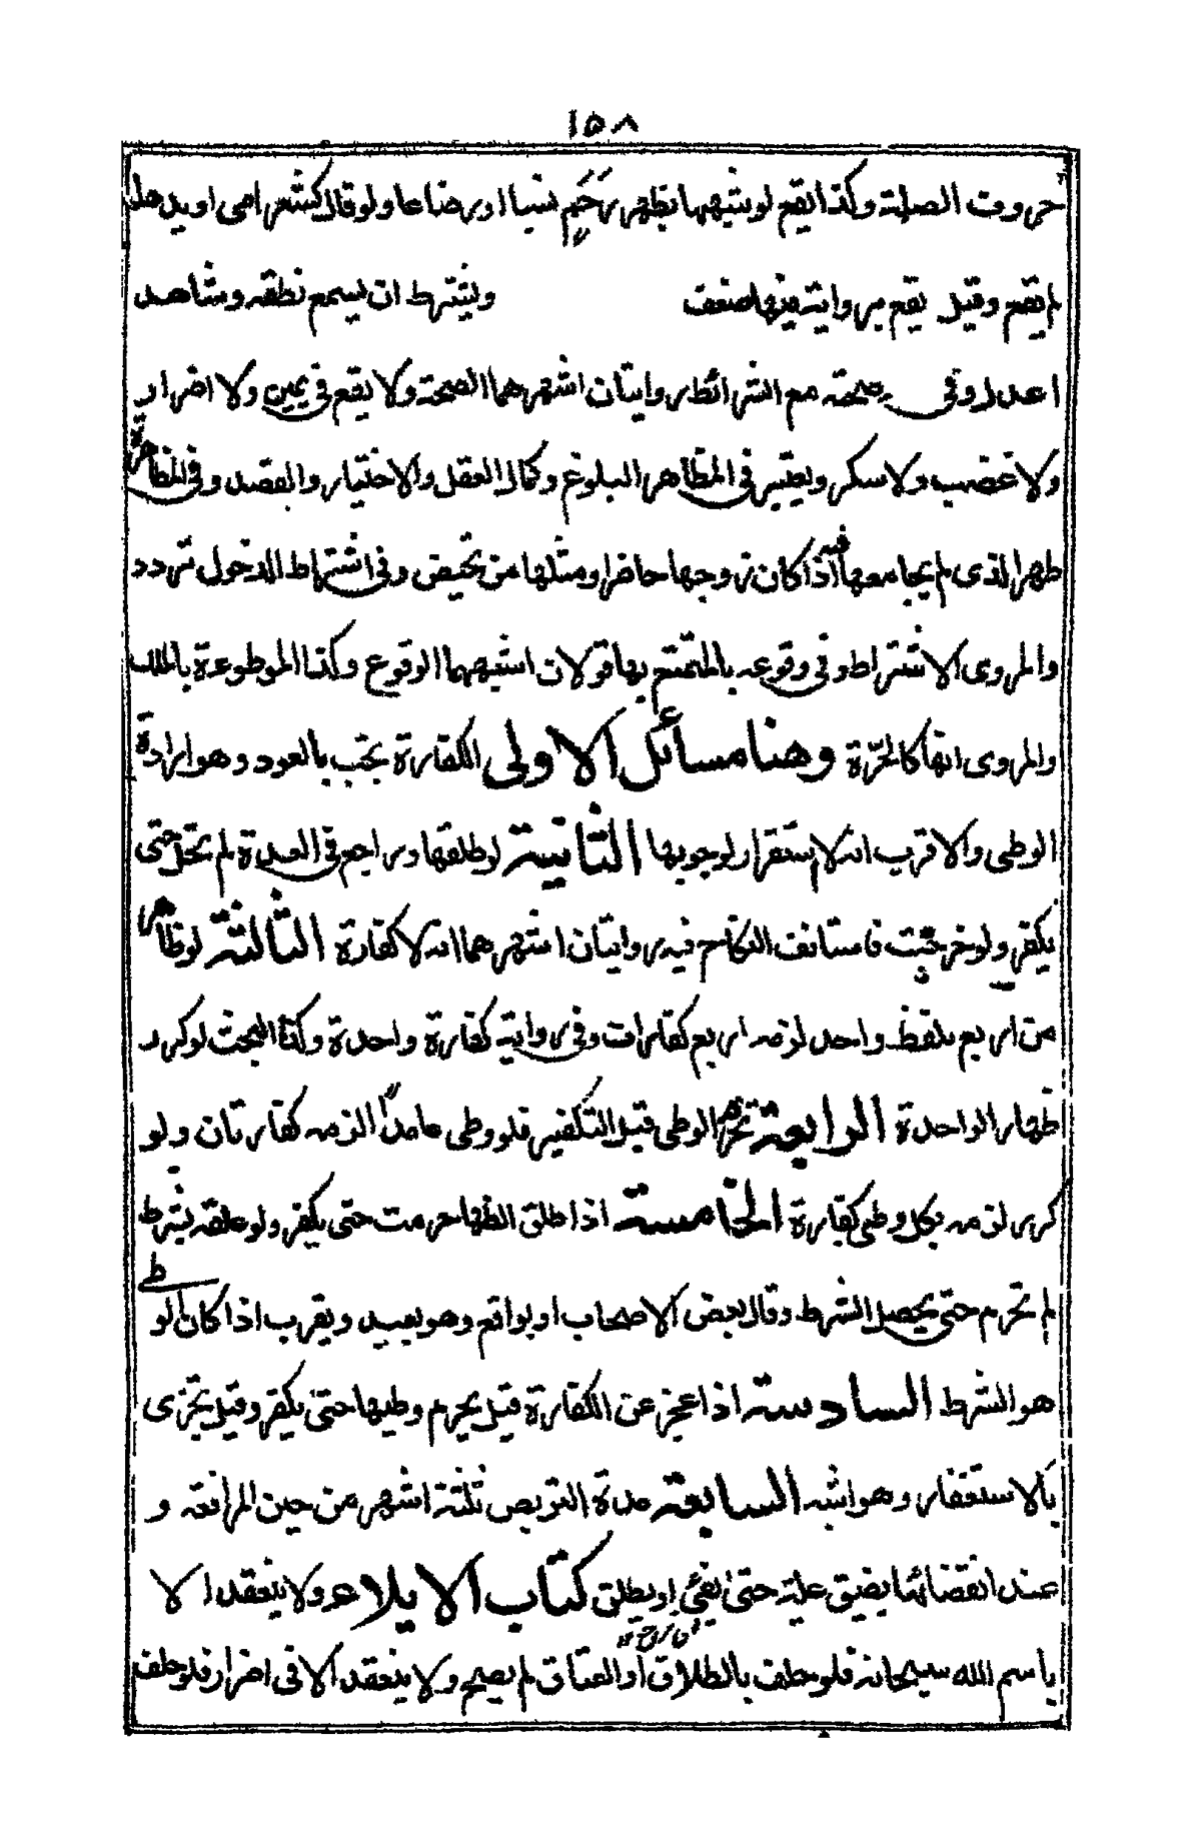 ١٥٨
حروف الصلة وكذا يقع لو شبهها بظهر رحم نسبا او رضاعا ولو قال كشعر امى او يدها
لم يقع وقيل يقع بروايته فيها ضعف ويشترط ان يسمع نطقه وشاهد
اعدل وفى صحته مع الشرائط روايتان اشهرهما الصحة ولا يقع فى يمين ولا اضرار
ولا غضب ولا سكر ويعتبر فى المظاهر البلوغ وكمال العقل والاختيار والقصد وفى المظاهرة
طهرا لذى لم يجامعها فيه اذا كان زوجها حاضرا ومثلها من تحيض وفى اشتراط الدخول تردد
والمروى الاشتراط وفى وقوعه بالمتمتع بها قولان اشبههما الوقوع وكذا الموطوءة بالملك
والمروى انها كالحرة وهنا مسائل الاولى الكفارة تجب بالعود وهو ارادة
الوطى والاقرب انه لا استقرار لوجوبها الثانية لو طلقها وراجع فى العدة لم تحل حتى
يكفر ولو خرجت فاستانف النكاح فيه روايتان اشهرهما انه لا كفارة الثالثة لو ظاهر
من اربع بلفظ واحد لزمه اربع كفارات وفى رواية كفارة واحدة وكذا البحث لو كرر
ظهار الواحدة الرابعة تحرم الوطى قبل التكفير فلو وطى عامدا الزمه كفارتان ولو
كرر لزمه بكل وطى كفارة الخامسة اذا طلق الظهار حرمت حتى يكفر ولو علقه بشرط
لم تحرم حتى يحصل الشرط وقال بعض الاصحاب او يواقع وهو بعيد ويقرب اذا كان الوطى
هو الشرط السادسة اذا عجز عن الكفارة قيل يحرم وطيها حتى يكفر وقيل يجزى
بالاستغفار وهو اشبه السابعة مدة التربص ثلثة اشهر من حين المرافعة و
عند انقضائها يضيق عليه حتى يفئ او يطلق كتاب الايلاء ولا ينعقد الا
باسم الله سبحانه فلو حلف بالطلاق او العتاق لم يصح ولا ينعقد الا فى اضرار فلو حلف